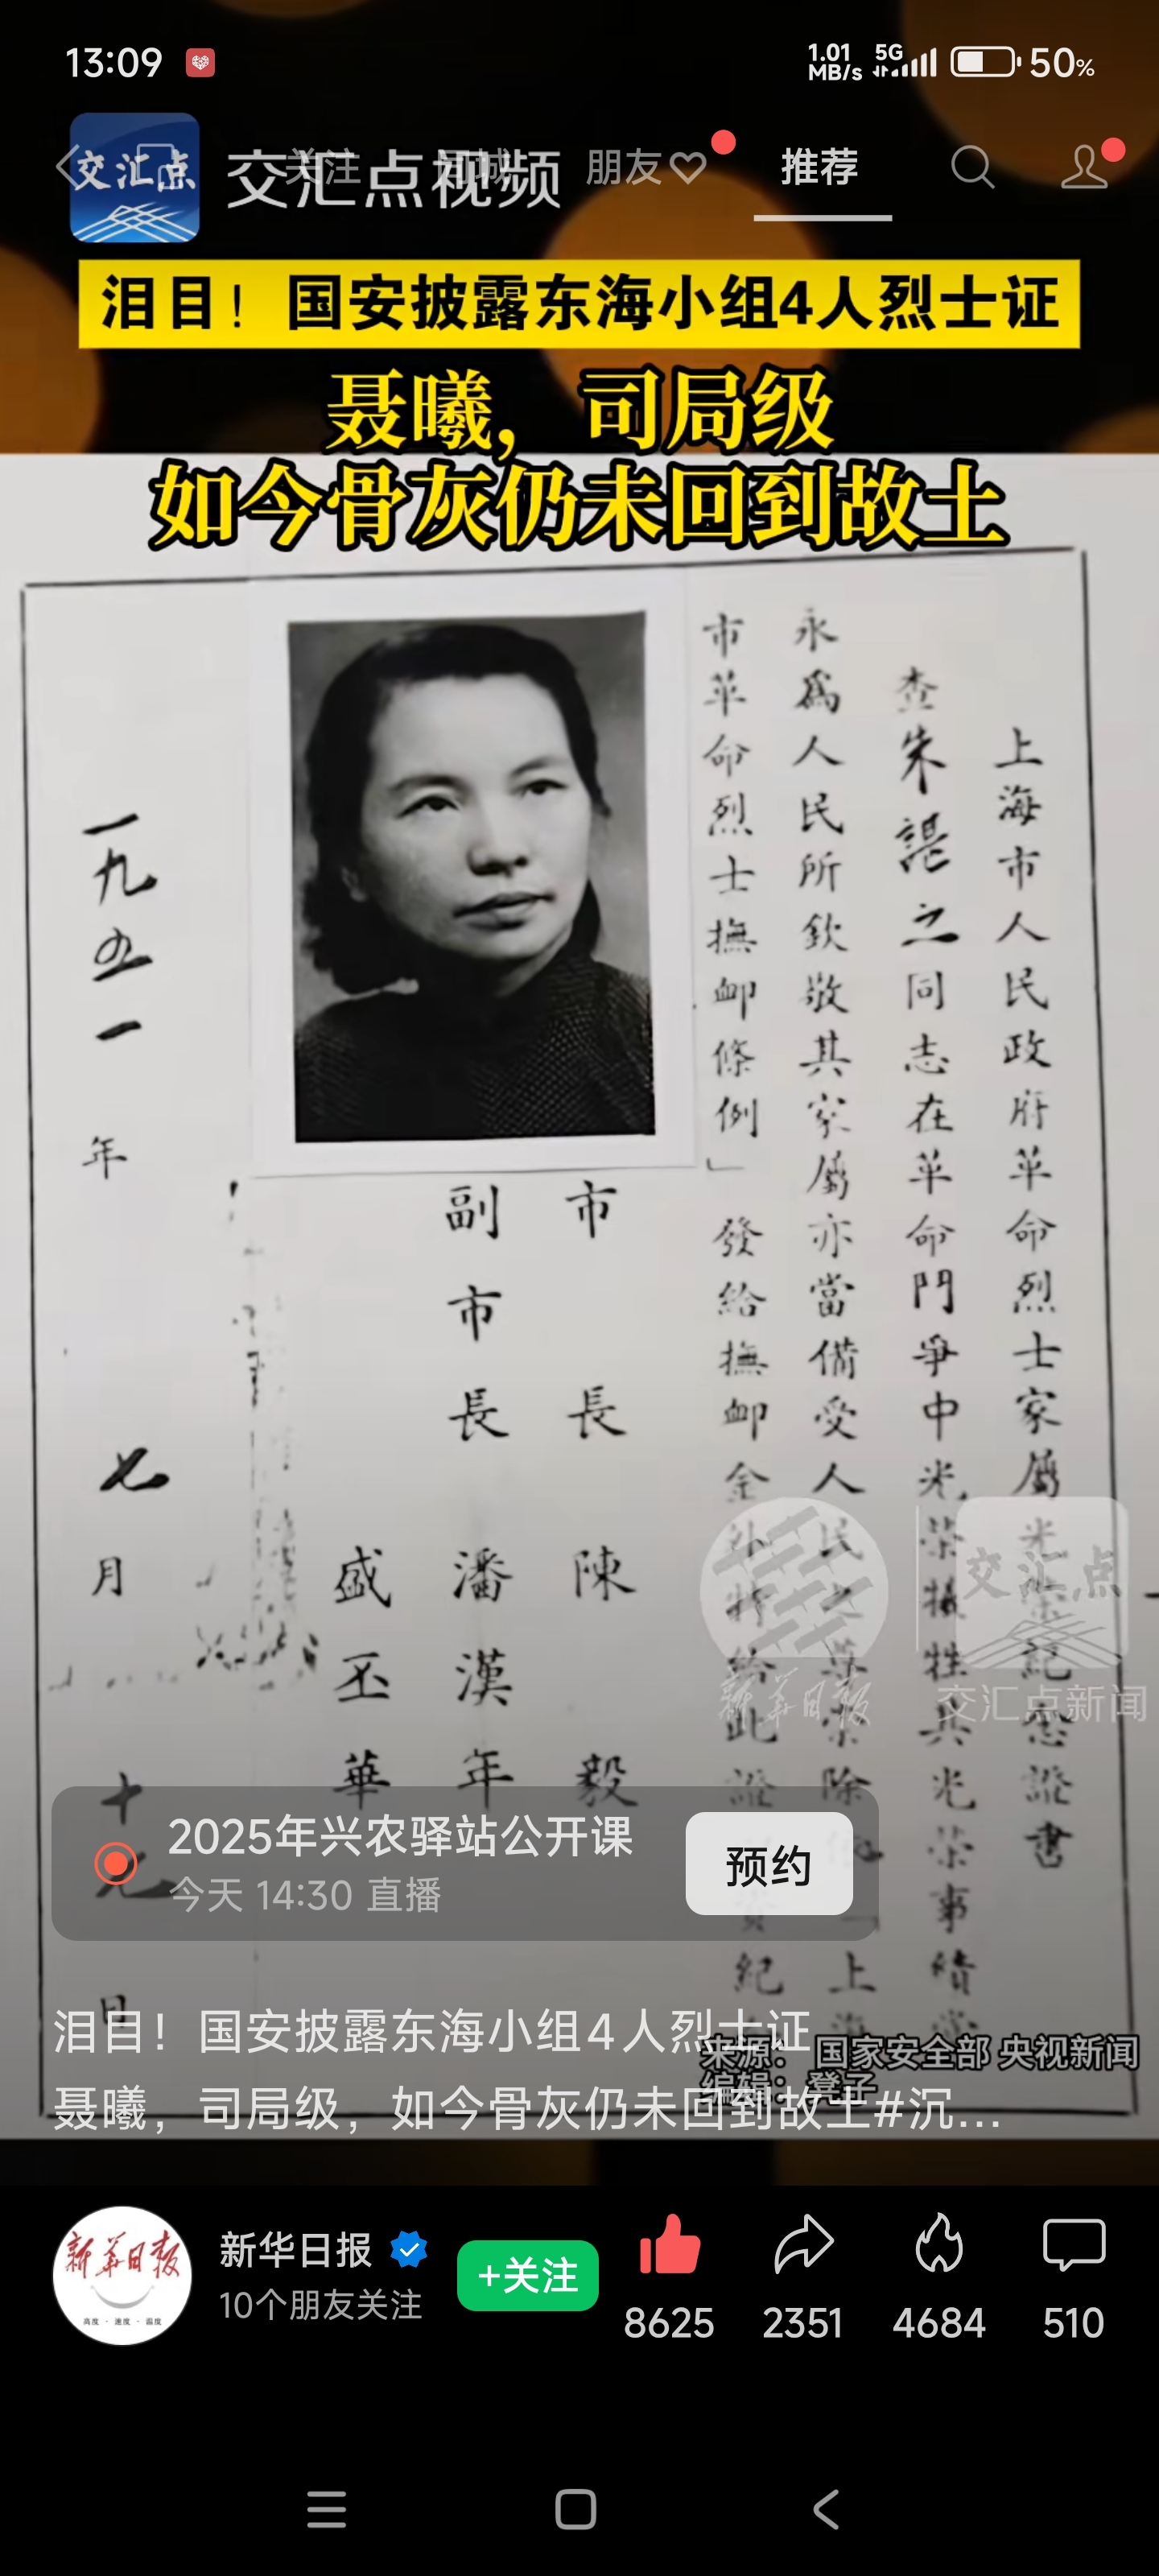 13:09
1.01 MB/s 5G 50%
交汇点 交汇点视频
关注 同城 朋友 推荐
泪目！国安披露东海小组4人烈士证
聂曦，司局级
如今骨灰仍未回到故土
上海市人民政府革命烈士家屬光榮紀念證書
查朱諶之同志在革命鬥爭中光榮犧牲其光榮事績當
永爲人民所欽敬其家屬亦當備受人民之尊崇除依「上海
市革命烈士撫卹條例」發給撫卹金外特給此證以資紀
市長 陳毅
副市長 潘漢年
盛丕華
一九五一年七月十九日
新华日报
交汇点
交汇点新闻
2025年兴农驿站公开课
今天 14:30 直播
预约
来源：国家安全部 央视新闻
编辑：凳子
泪目！国安披露东海小组4人烈士证
聂曦，司局级，如今骨灰仍未回到故土#沉...
新华日报
高度·速度·温度
新华日报
10个朋友关注
+关注
8625 2351 4684 510